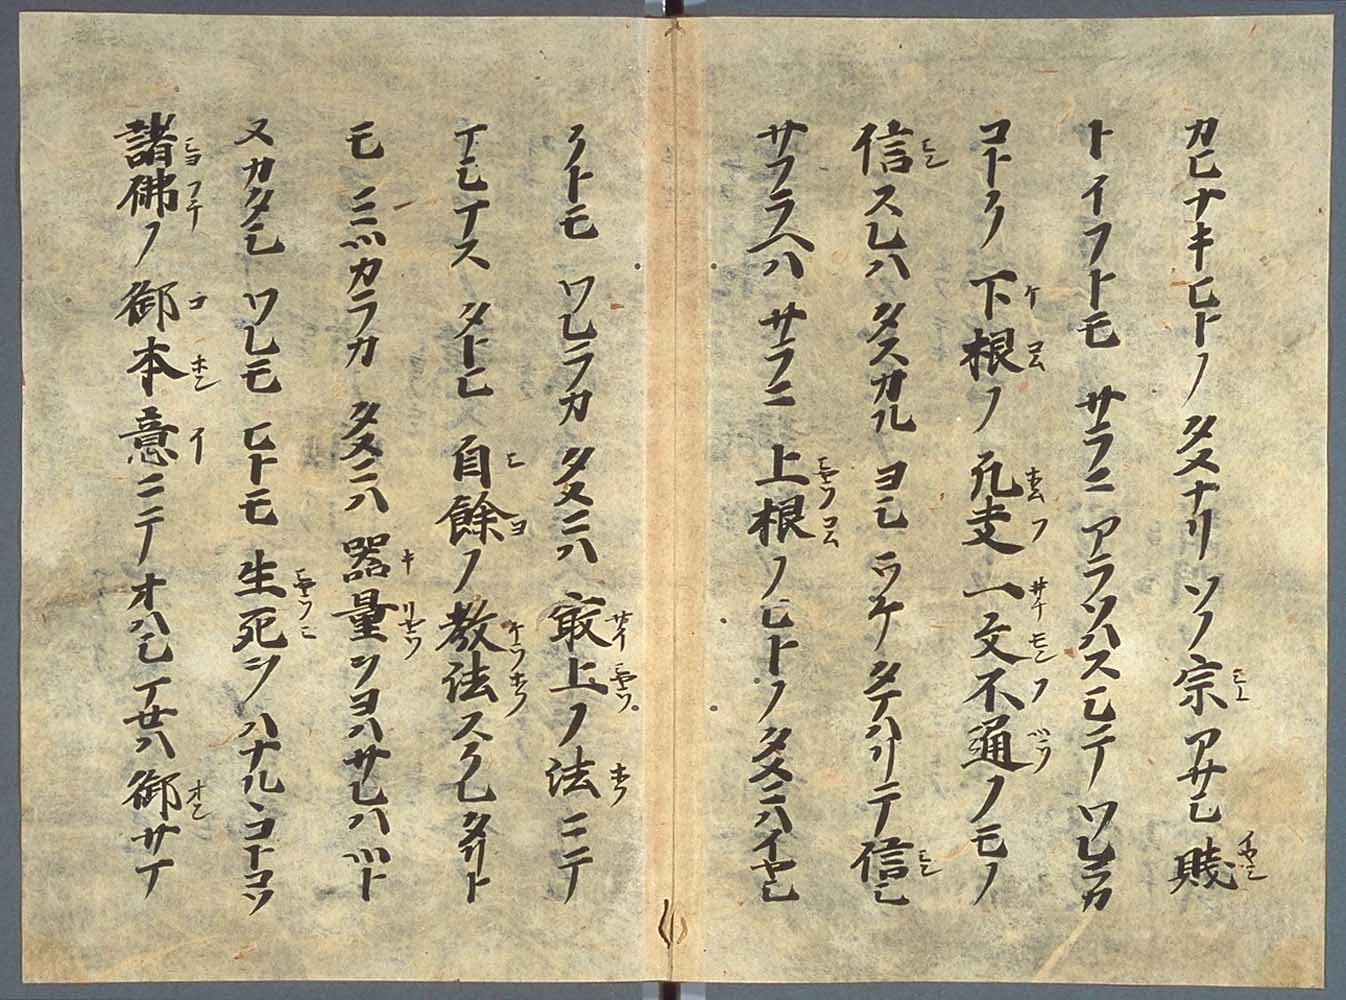 カヒナキヒトノタメナリソノ宗アサシ賤
トイフトモサラニアラソハスシテワレラカ
コトク下根ノ凡夫一文不通ノモノ
信スレハタスカルヨシウケタマハリテ信シ
サフラヘハサラニ上根ノヒトノタメニハイヤシ
クトモワレラカタメニハ最上ノ法ニテ
マシマスタトヒ自餘ノ教法スクレタリト
モミツカラカタメニハ器量ヲヨハサレハツト
メカタシワレモヒトモ生死ヲハナレンコトコソ
諸佛ノ御本意ニテオハシマセハ御サマ